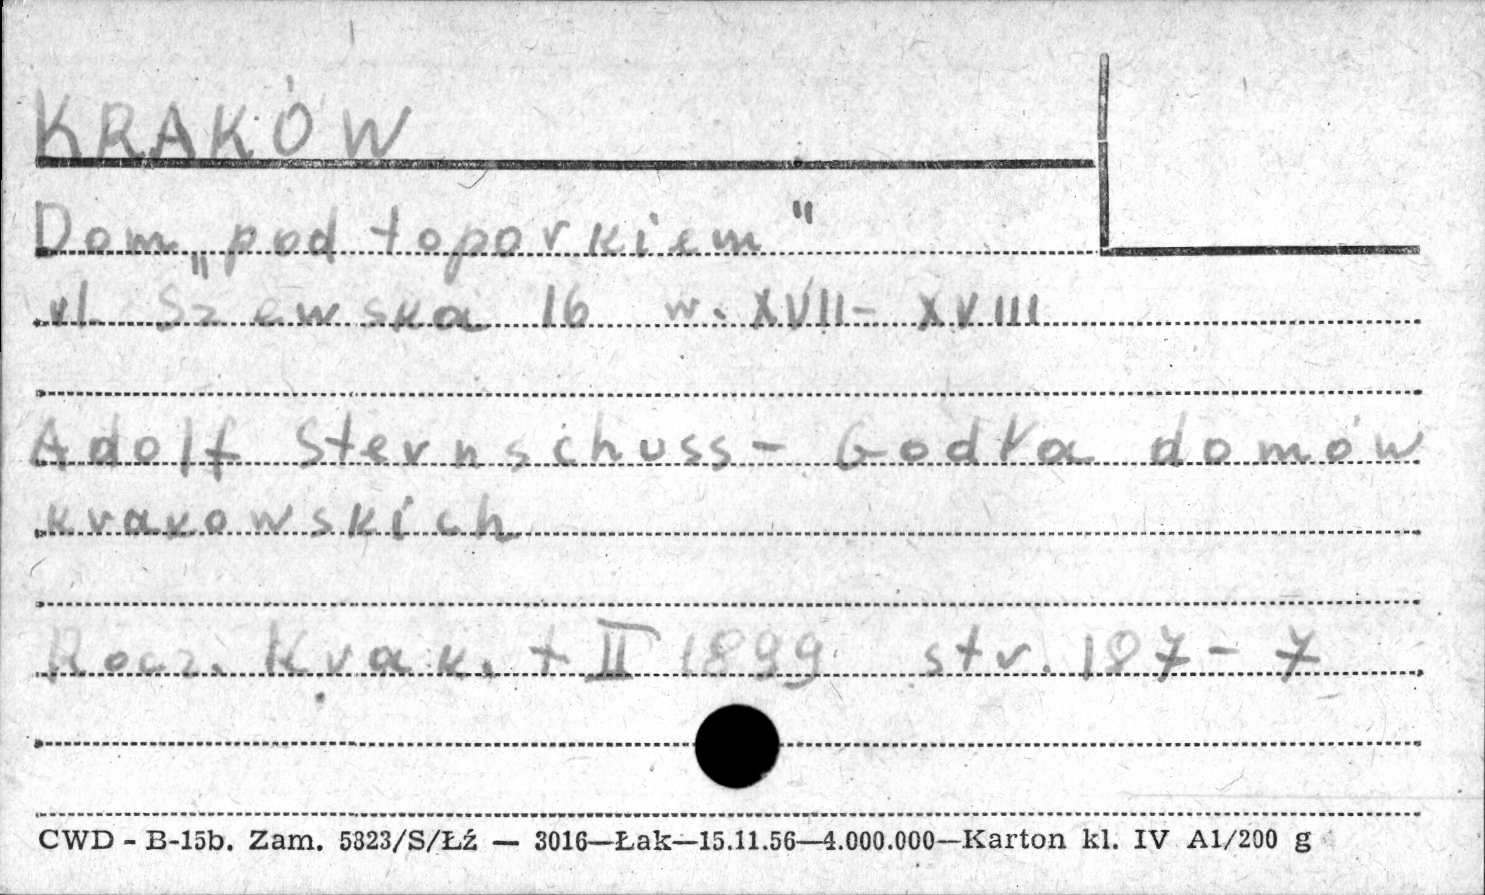 KRAKÓW
Dom „pod toporkiem"
ul. Szewska 16 w. XVII - XVIII
Adolf Sternschuss - Godła domów
krakowskich
Rocz. Krak. t II 1899 str. 187-7
CWD - B-15b. Zam. 5823/S/Łź — 3016—Łak—15.11.56—4.000.000—Karton kl. IV A1/200 g